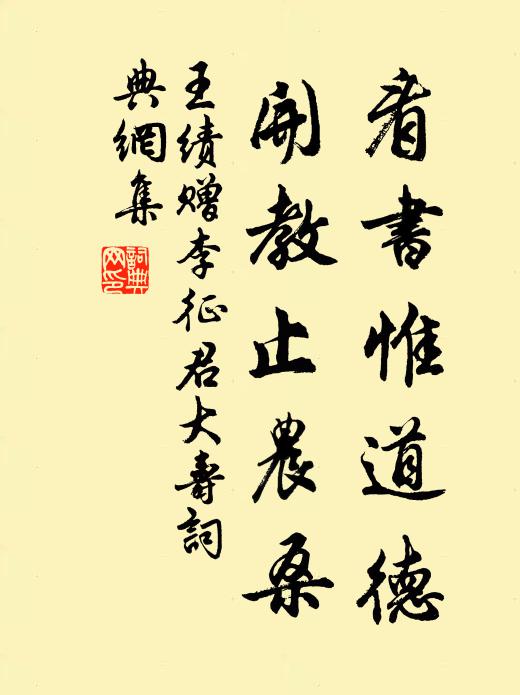 看書惟道德
開教止農桑
王績贈李征君大壽詞
典網集
詞典網印